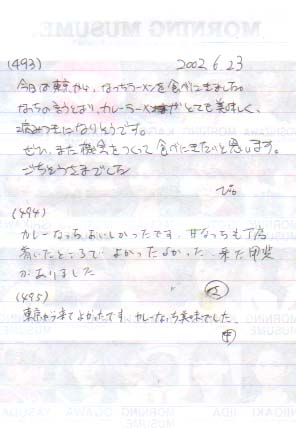 (493) 2002.6.23
今日は東京から、なっちラーメンを食べにきました。
なっちの言うとおり、カレーラーメンがとても美味しく、
病みつきになりそうです。
ぜひ、また機会をつくって食べにきたいと思います。
ごちそうさまでした
(494)
カレーなっちおいしかったです。甘なっちも丁度
着いたところで よかったよかった。来た甲斐
がありました
(495)
東京から来てよかったです。カレーなっち美味でした。